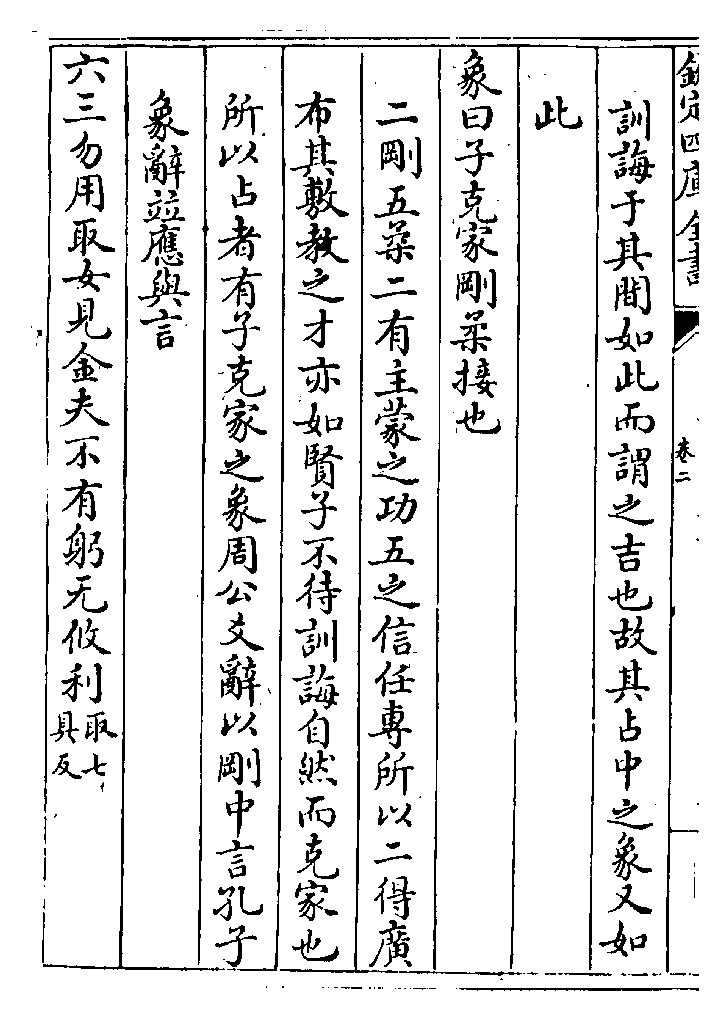 欽定四庫全書
卷二
訓誨于其間如此而謂之吉也故其占中之象又如
此
象曰子克家剛柔接也
二剛五柔二有主蒙之功五之信任專所以二得廣
布其敷教之才亦如賢子不待訓誨自然而克家也
所以占者有子克家之象周公爻辭以剛中言孔子
象辭竝應與言
六三勿用取女見金夫不有躬无攸利取七具反